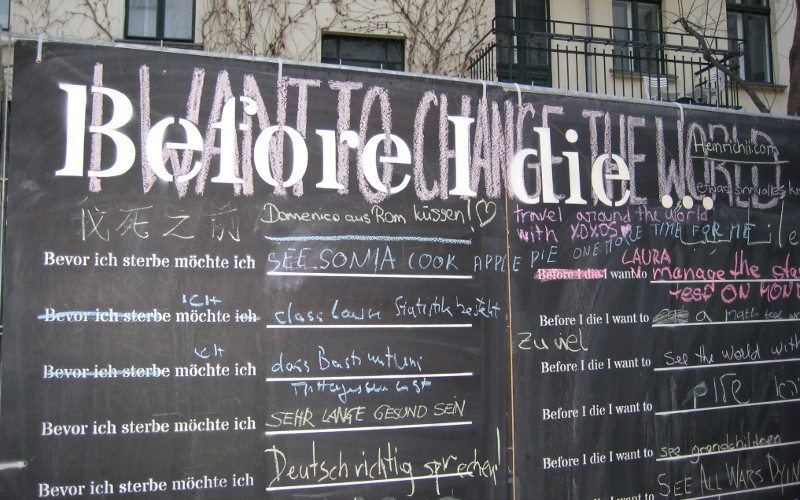 I WANT TO CHANGE THE WORLD
Before I die ...
Heinrichii.com
etwas sinnvolles
我死之前
Domenico aus Rom küssen! ♡
Bevor ich sterbe möchte ich SEE SONJA COOK APPLE PIE ONE MORE TIME FOR ME
Bevor ich sterbe möchte ich ich dass Laura Statistik besteht
Bevor ich sterbe möchte ich ich dass Basti
SEHR LANGE GESUND SEIN
Bevor ich sterbe möchte ich
Deutsch richtig sprechen!
Bevor ich sterbe möchte ich
travel around the world
with XOXOS ♥
LAURA
Before I die I want to manage the
test ON
Before I die I want to a math test
zu viel
Before I die I want to see the world with
Before I die I want to
Before I die I want to see grandchildren
Before I die I want to SEE ALL WARS